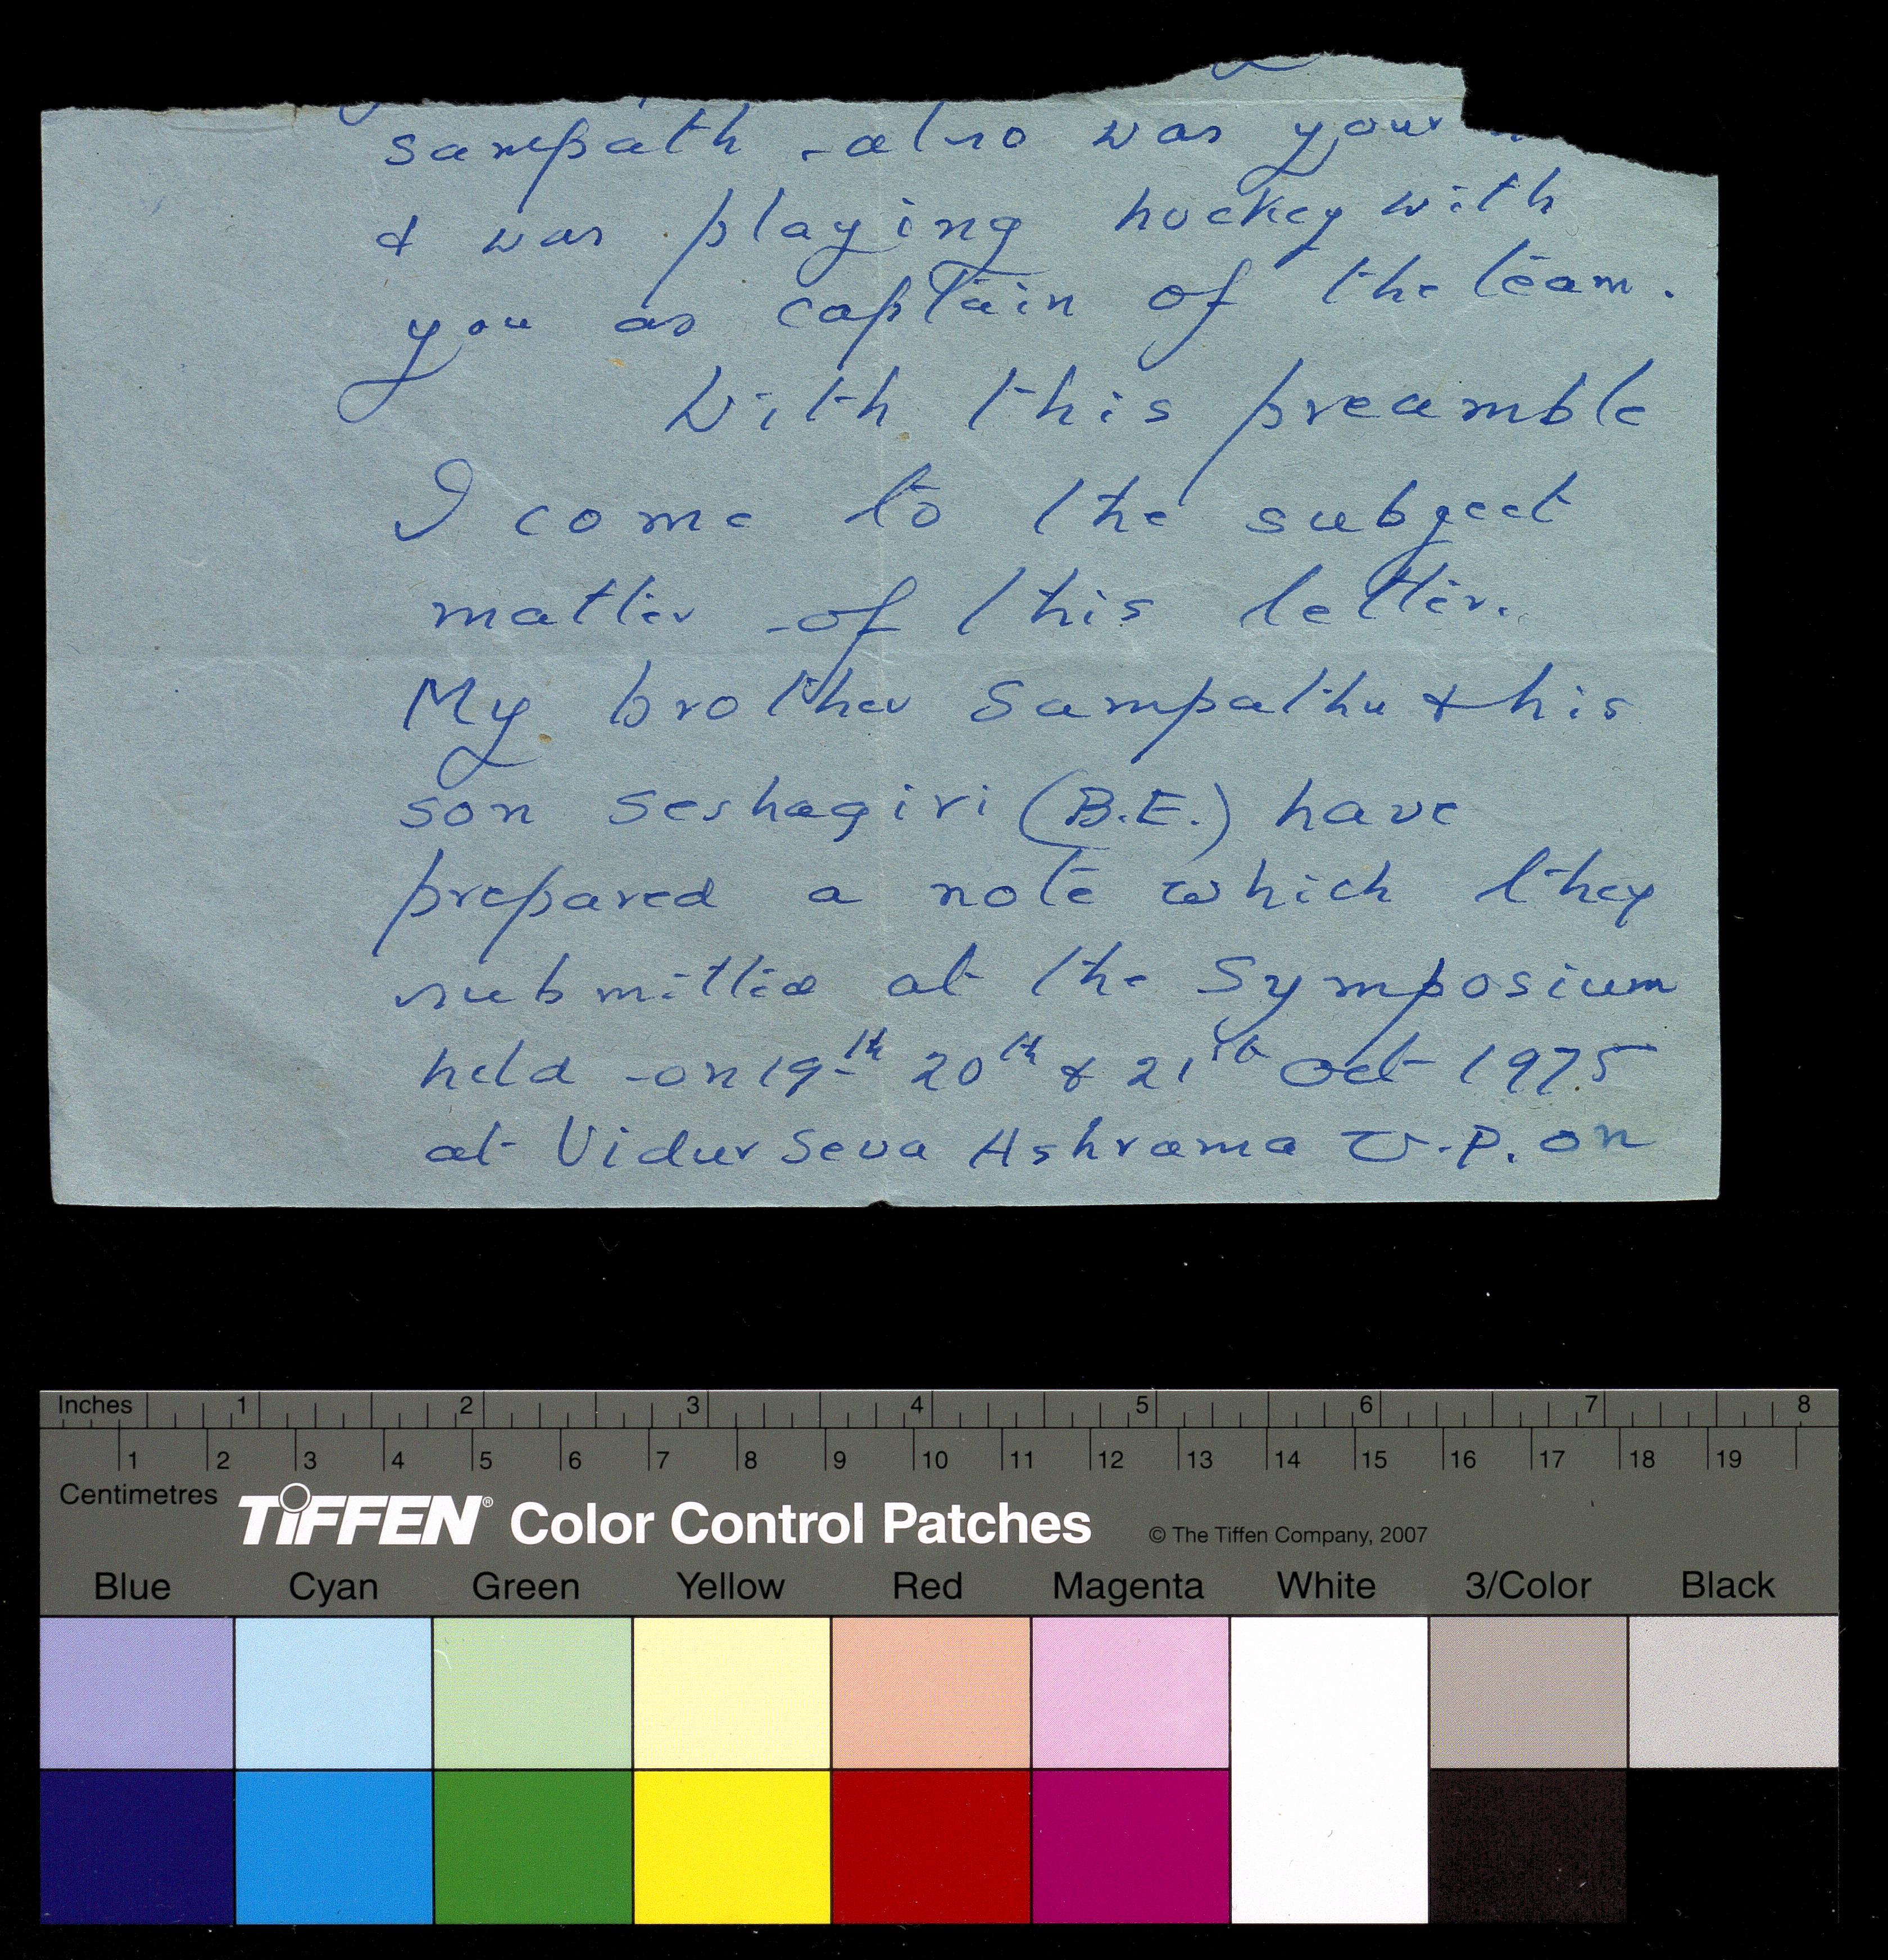 sampath also was your
& was playing hockey with
you as captain of the team.
With this preamble
I come to the subject
matter of this letter.
My brother Sampathu & his
son Seshagiri (B.E.) have
prepared a note which they
submitted at the Symposium
held on 19th 20th & 21st Oct 1975
at Vidur Seva Ashrama U.P. on
Inches 1 2 3 4 5 6 7 8
1 2 3 4 5 6 7 8 9 10 11 12 13 14 15 16 17 18 19
Centimetres
TIFFEN® Color Control Patches © The Tiffen Company, 2007
Blue Cyan Green Yellow Red Magenta White 3/Color Black